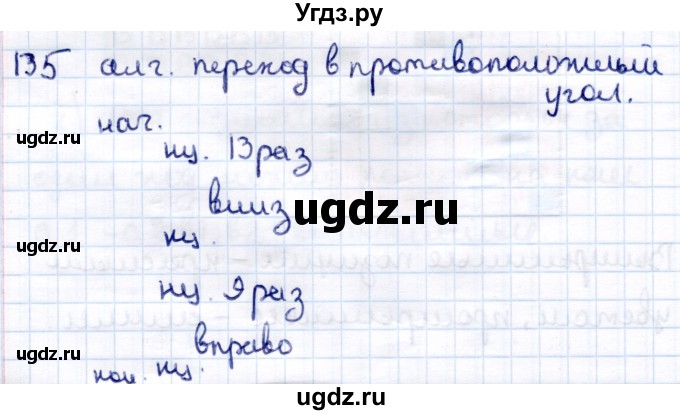 Угдз.ру
135 алг. переход в противоположный
угол.
нач.
ugdz.ru
нц. 13 раз
ugdz.ru
вниз
ugdz.ru
кц.
ugdz.ru
нц. 9 раз
ugdz.ru
вправо
ugdz.ru
кон. кц.